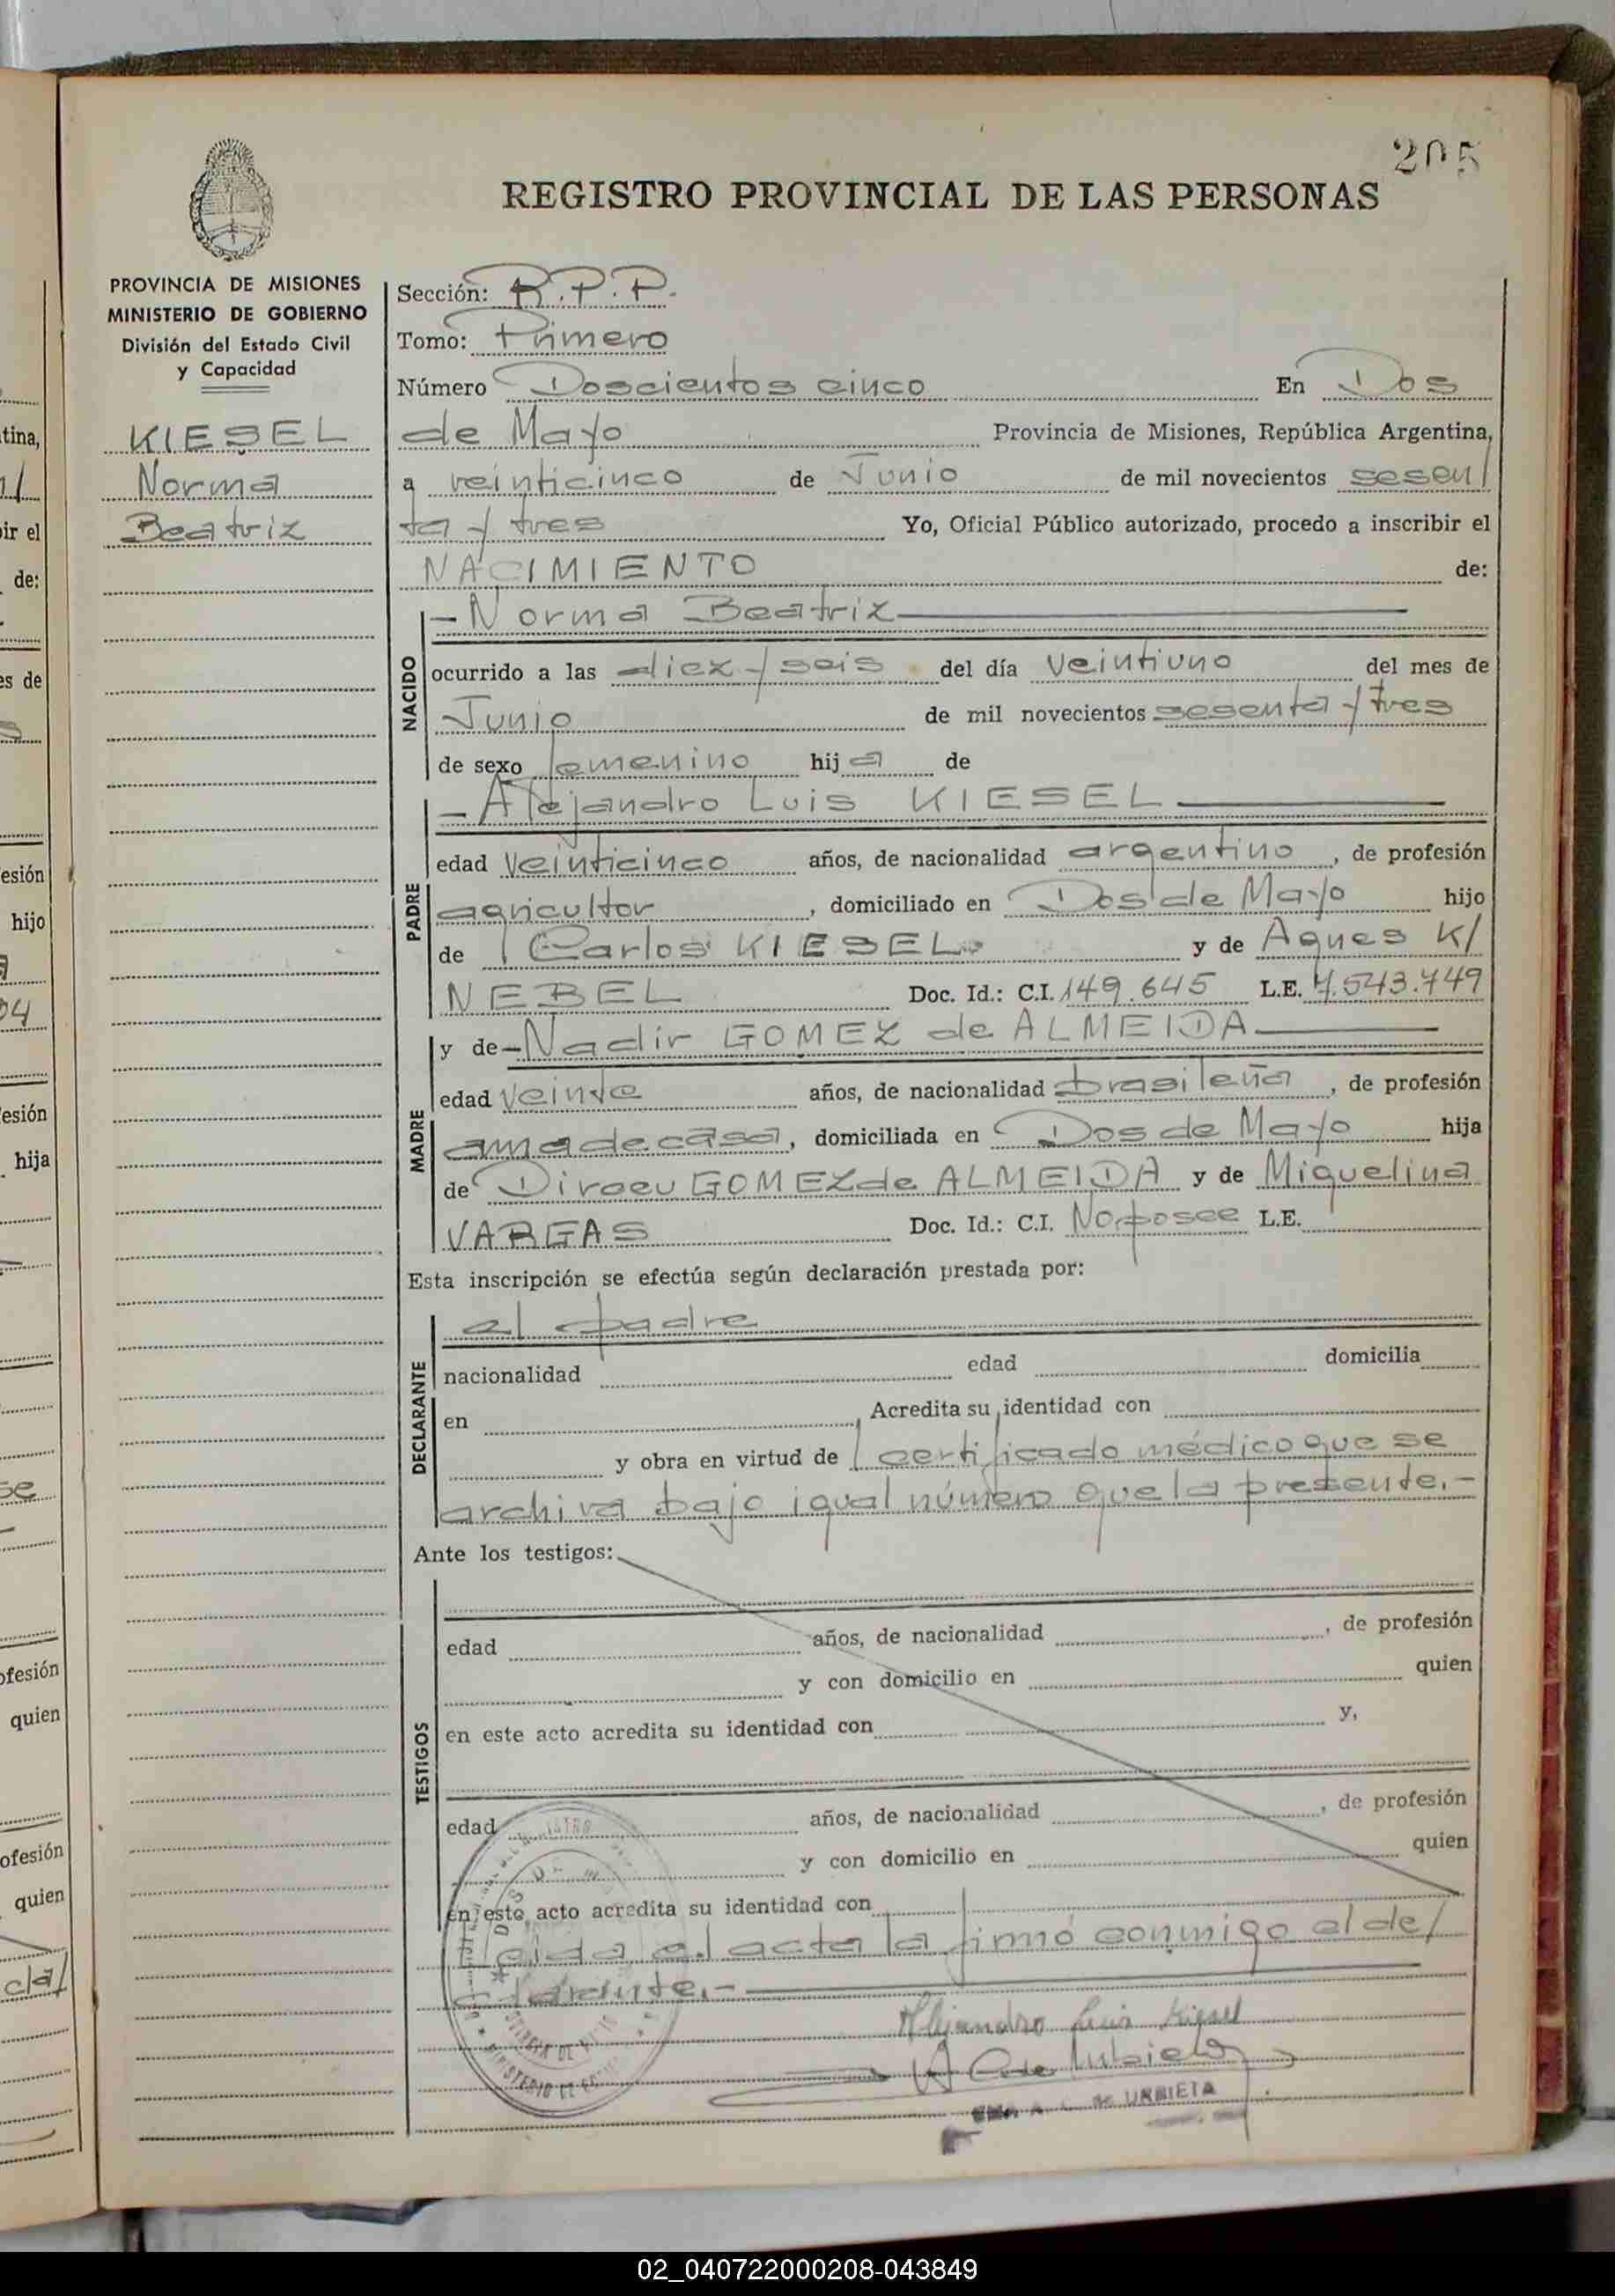 205
REGISTRO PROVINCIAL DE LAS PERSONAS
PROVINCIA DE MISIONES
MINISTERIO DE GOBIERNO
División del Estado Civil
y Capacidad
KIESEL
Norma
Beatriz
Sección: R.P.P.
Tomo: Primero
Número Doscientos cinco En Dos
de Mayo Provincia de Misiones, República Argentina,
a veinticinco de Junio de mil novecientos sesen/
ta y tres Yo, Oficial Público autorizado, procedo a inscribir el
NACIMIENTO de:
NACIDO
- Norma Beatriz
ocurrido a las diez y seis del día veintiuno del mes de
Junio de mil novecientos sesenta y tres
de sexo femenino hija de
PADRE
- Alejandro Luis KIESEL
edad veinticinco años, de nacionalidad argentino, de profesión
agricultor, domiciliado en Dos de Mayo hijo
de Carlos KIESEL y de Agnes K/
NEBEL Doc. Id.: C.I. 149.645 L.E. 7.543.749
MADRE
y de - Nadir GOMEZ de ALMEIDA
edad veinte años, de nacionalidad brasileña, de profesión
ama de casa, domiciliada en Dos de Mayo hija
de Diroeu GOMEZ de ALMEIDA y de Miguelina
VARGAS Doc. Id.: C.I. No posee L.E.
Esta inscripción se efectúa según declaración prestada por:
DECLARANTE
el padre
nacionalidad edad domicilia
en , Acredita su identidad con
y obra en virtud de certificado médico que se
archiva bajo igual número que la presente.-
Ante los testigos:
TESTIGOS
edad años, de nacionalidad , de profesión
y con domicilio en quien
en este acto acredita su identidad con y,
edad años, de nacionalidad , de profesión
y con domicilio en quien
en este acto acredita su identidad con
Leida el acta la firmó conmigo el de/
clarante.-
Alejandro Luis Kiesel
de URBIETA
tina,
ir el
de:
es de
esión
hijo
04
esión
hija
se
ofesión
quien
ofesión
quien
cla/
02_040722000208-043849